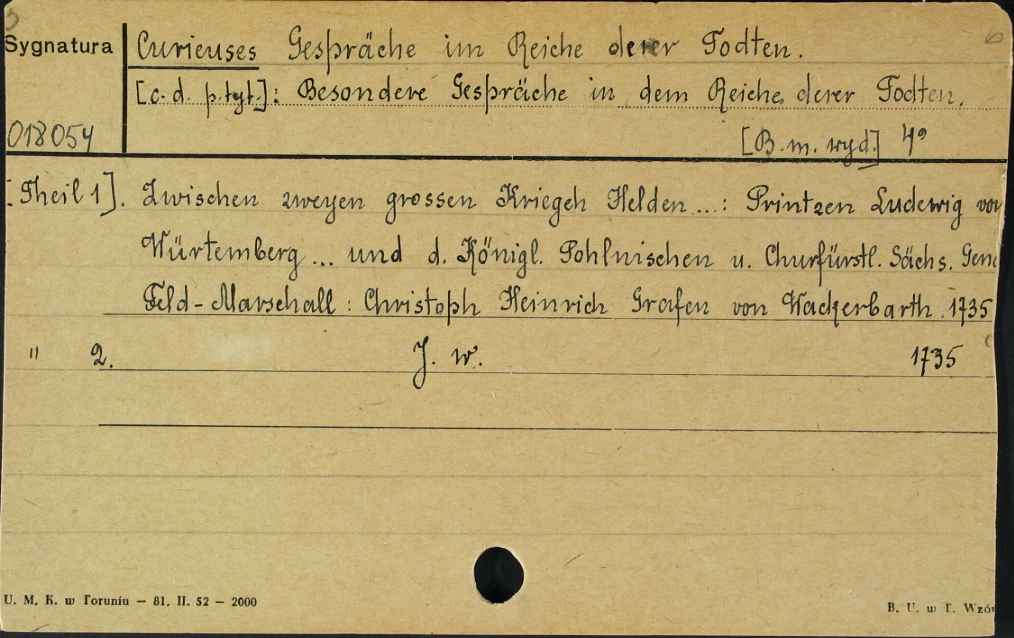 Sygnatura
Curieuses Gespräche im Reiche derer Todten.
[c. d. p. tyt.]: Besondere Gespräche in dem Reiche derer Todten.
018054
[B. m. wyd.] 4º
[Theil 1]. Zwischen zweyen grossen Kriegeh Helden ...: Printzen Ludewig von
Würtemberg ... und d. Königl. Pohlnischen u. Churfürstl. Sächs. Gene
Feld-Marschall: Christoph Heinrich Grafen von Wackerbarth. 1735
" 2. J. w. 1735
U. M. K. w Toruniu — 81. II. 52 — 2000
B. U. w T. Wzór